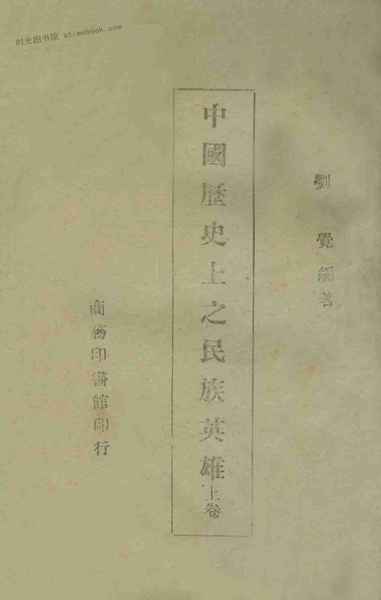 时光图书馆
劉覺編著
中國歷史上之民族英雄上卷
商務印書館印行